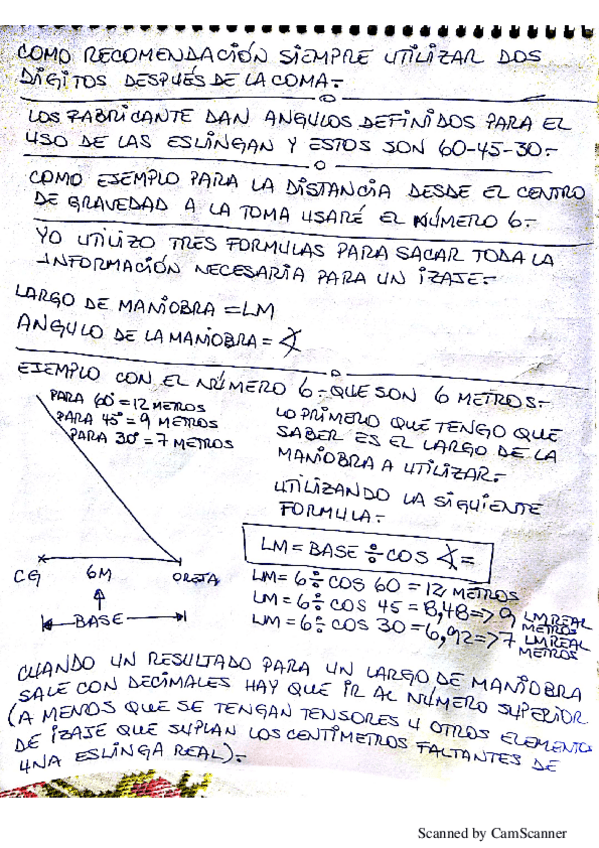 COMO RECOMENDACIÓN SIEMPRE UTILIZAR DOS
DÍGITOS DESPUÉS DE LA COMA.-
LOS FABRICANTE DAN ANGULOS DEFINIDOS PARA EL
USO DE LAS ESLINGAN Y ESTOS SON 60-45-30.-
COMO EJEMPLO PARA LA DISTANCIA DESDE EL CENTRO
DE GRAVEDAD A LA TOMA USARÉ EL NÚMERO 6.-
YO UTILIZO TRES FORMULAS PARA SACAR TODA LA
INFORMACIÓN NECESARIA PARA UN IZAJE.-
LARGO DE MANIOBRA = LM
ANGULO DE LA MANIOBRA = ∢
EJEMPLO CON EL NÚMERO 6.- QUE SON 6 METROS.-
PARA 60° = 12 METROS
PARA 45° = 9 METROS
PARA 30° = 7 METROS
LO PRIMERO QUE TENGO QUE
SABER ES EL LARGO DE LA
MANIOBRA A UTILIZAR.-
UTILIZANDO LA SIGUIENTE
FORMULA.-
LM = BASE ÷ COS ∢ =
CG 6M OREJA
BASE
LM = 6 ÷ COS 60 = 12 METROS
LM = 6 ÷ COS 45 = 8,48 => 9 LM REAL METROS
LM = 6 ÷ COS 30 = 6,92 => 7 LM REAL METROS
CUANDO UN RESULTADO PARA UN LARGO DE MANIOBRA
SALE CON DECIMALES HAY QUE IR AL NÚMERO SUPERIOR
(A MENOS QUE SE TENGAN TENSORES U OTROS ELEMENTO
DE IZAJE QUE SUPLAN LOS CENTÍMETROS FALTANTES DE
UNA ESLINGA REAL).-
Scanned by CamScanner